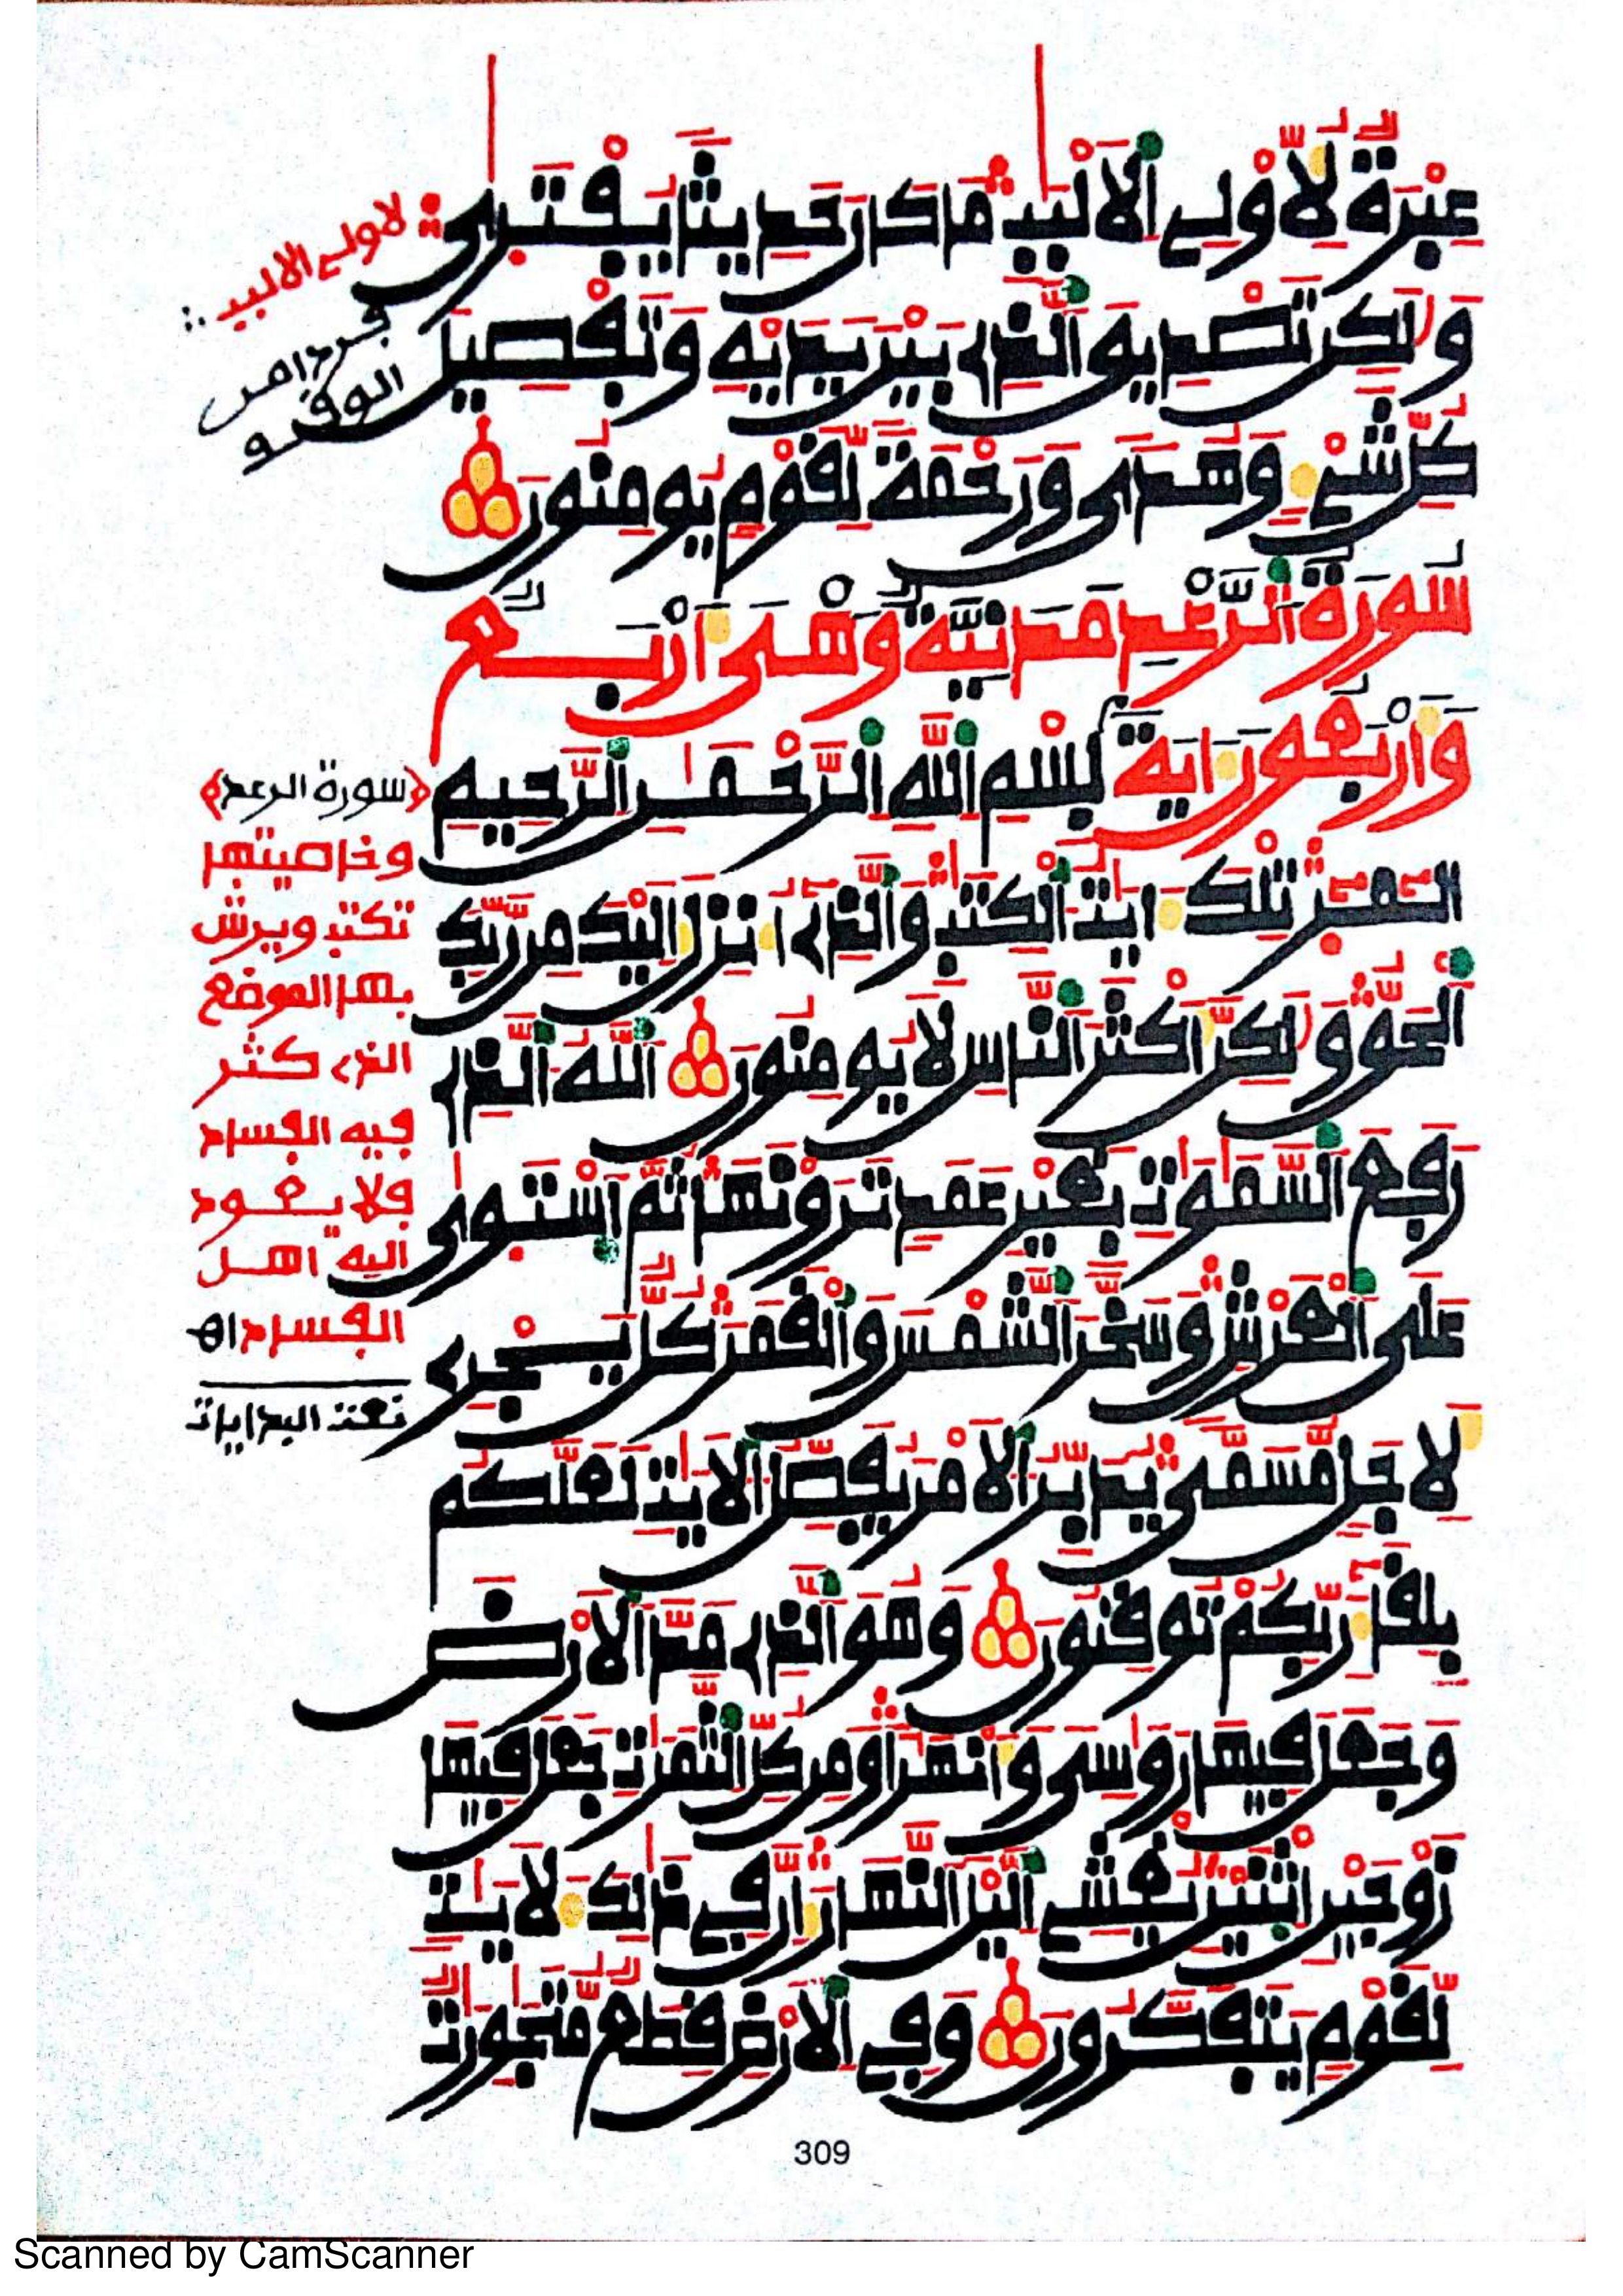 عِبْرَةٌ لِّأُوْلِے اِ۬لَالْبَٰبِ مَا كَانَ حَدِيثاٗ يُفْتَر۪يٰ
وَلَٰكِن تَصْدِيقَ اَ۬لذِے بَيْنَ يَدَيْهِ وَتَفْصِيلَ
كُلِّ شَےْءٖ وَهُديٗ وَرَحْمَةٗ لِّقَوْمٖ يُومِنُونَ
سُورَةُ اُ۬لرَّعْدِ مَدَنِيَّةٌ وَهْيَ أَرْبَعٌ
وَأَرْبَعُونَ ءَايَةً بِسْمِ اِ۬للَّهِ اِ۬لرَّحْمَٰنِ اِ۬لرَّحِيمِ
أَلَٓمِّٓر۪ۖ تِلْكَ ءَايَٰتُ اُ۬لْكِتَٰبِ وَالذِےٓ أُنزِلَ إِلَيْكَ مِن رَّبِّكَ
اَ۬لْحَقُّ وَلَٰكِنَّ أَكْثَرَ اَ۬لنَّاسِ لَا يُومِنُونَ اَ۬للَّهُ اُ۬لذِے
رَفَعَ اَ۬لسَّمَٰوَٰتِ بِغَيْرِ عَمَدٖ تَرَوْنَهَا ثُمَّ اَ۪سْتَو۪يٰ
عَلَي اَ۬لْعَرْشِ وَسَخَّرَ اَ۬لشَّمْسَ وَالْقَمَرَ كُلّٞ يَجْرِے
لِأَجَلٖ مُّسَمّيٗ يُدَبِّرُ اُ۬لَامْرَ يُفَصِّلُ اُ۬لَايَٰتِ لَعَلَّكُم
بِلِقَآءِ رَبِّكُمْ تُوقِنُونَ وَهُوَ اَ۬لذِے مَدَّ اَ۬لَارْضَ
وَجَعَلَ فِيهَا رَوَٰسِيَ وَأَنْهَٰراٗ وَمِن كُلِّ اِ۬لثَّمَرَٰتِ جَعَلَ فِيهَا
زَوْجَيْنِ اِ۪ثْنَيْنِ يُغْشِے اِ۬ليْلَ اَ۬لنَّهَارَ إِنَّ فِے ذَٰلِكَ لَأٓيَٰتٖ
لِّقَوْمٖ يَتَفَكَّرُونَ وَفِے اِ۬لَارْضِ قِطَعٞ مُّتَجَٰوِرَٰتٞ
لاولے الالببـ
فرءا من
الوقف
﴿سورة الرعد﴾
وخاصيتها
تكتب ويرش
بها الموضع
الذے كثر
فيه الفساد
فلا يعود
اليه اهل
الفساد اه
نعت البدايات
309
Scanned by CamScanner